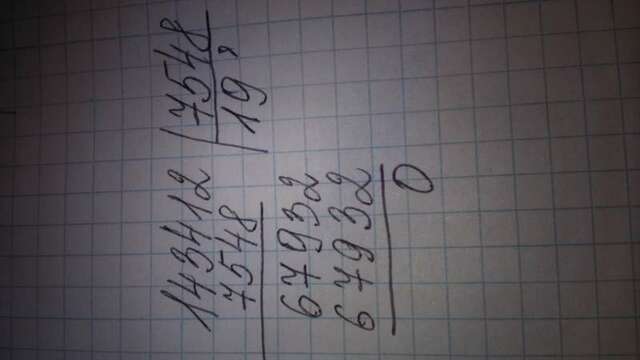 143412 7548
7548 19,
67932
67932
0